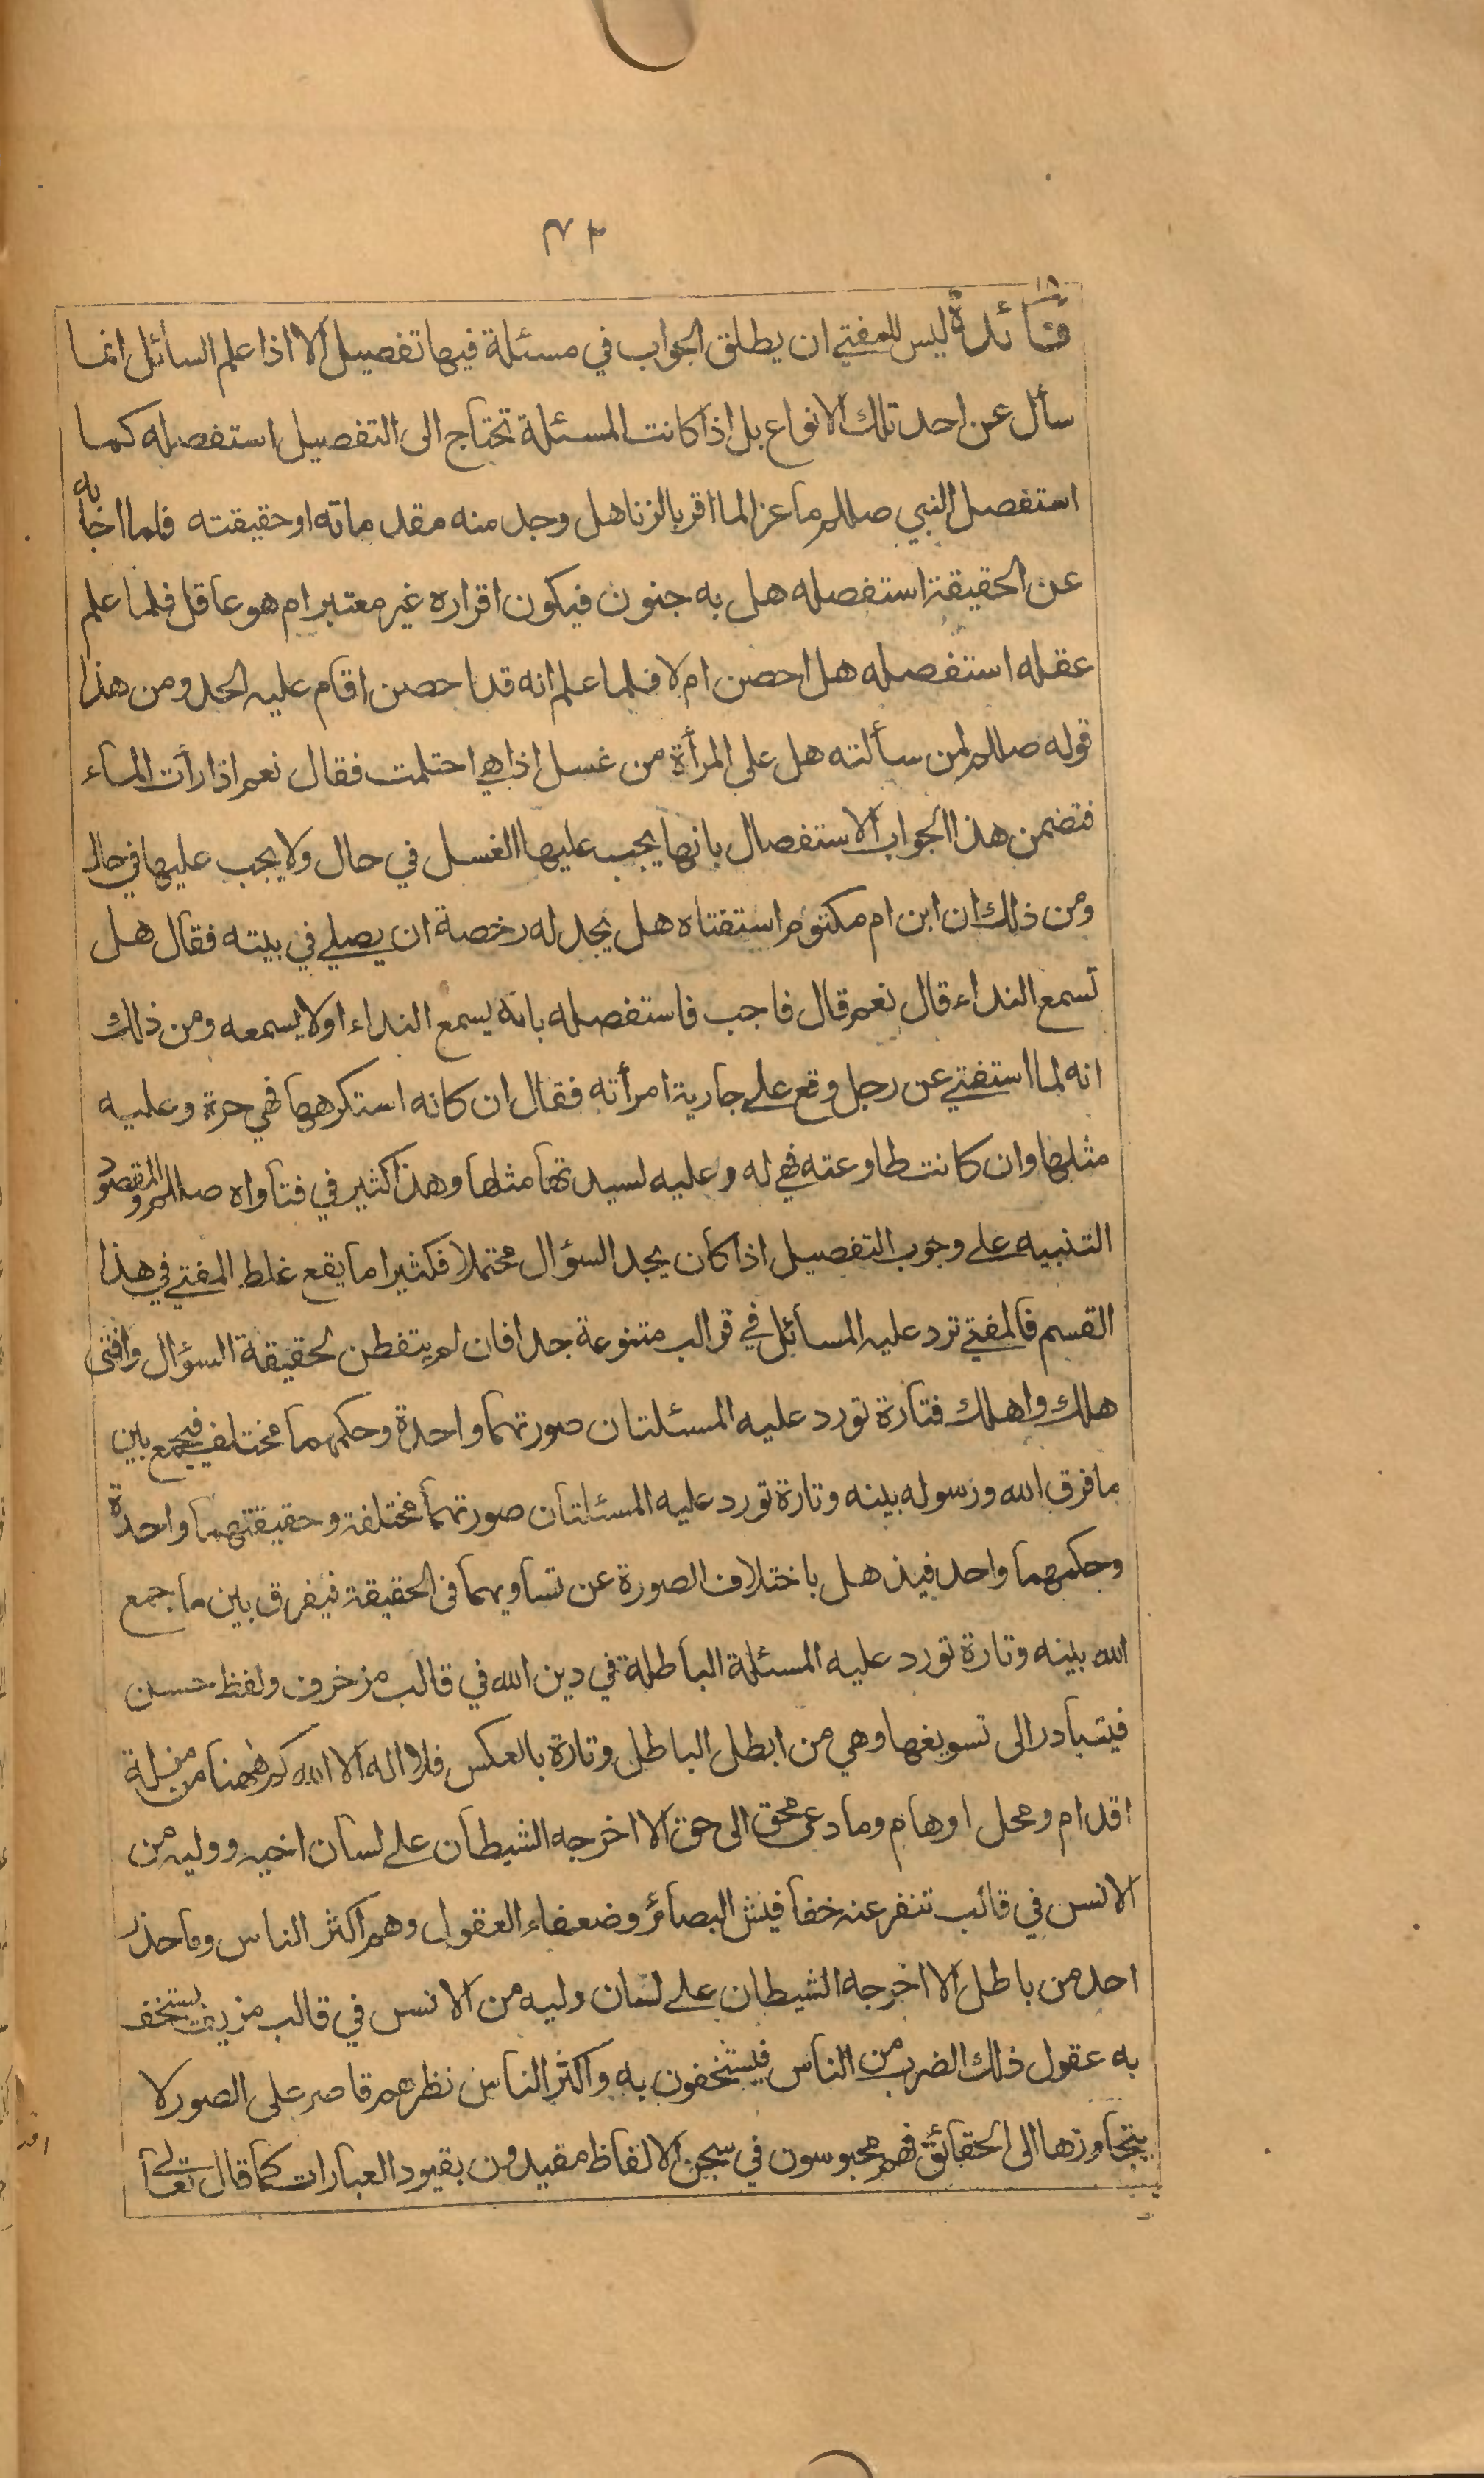 ٧٣
١٨
فائدة ليس للمفتي ان يطلق الجواب في مسئلة فيها تفصيل الا اذا علم السائل انما
سأل عن احد تلك الانواع بل اذا كانت المسئلة تحتاج الى التفصيل استفصله كما
استفصل النبي صللم ماعزا لما اقر بالزنا هل وجد منه مقدماته او حقيقته فلما اجابه
عن الحقيقة استفصله هل به جنون فيكون اقراره غير معتبر ام هو عاقل فلما علم
عقله استفصله هل احصن ام لا فلما علم انه قد احصن اقام عليه الحد ومن هذا
قوله صللم لمن سألته هل على المرأة من غسل اذا هي احتلمت فقال نعم اذا رأت الماء
فتضمن هذا الجواب الاستفصال بانها يجب عليها الغسل في حال ولا يجب عليها في حال
ومن ذلك ان ابن ام مكتوم استفتاه هل يجد له رخصة ان يصلي في بيته فقال هل
تسمع النداء قال نعم قال فاجب فاستفصله بانه يسمع النداء او لا يسمعه ومن ذلك
انه لما استفتي عن رجل وقع على جارية امرأته فقال ان كانه استكرهها فهي حرة وعليه
مثلها وان كانت طاوعته فهي له وعليه لسيدتها مثلها وهذا كثير في فتاواه صللم والمقصود
التنبيه على وجوب التفصيل اذا كان يجد السؤال محتملا فكثيرا ما يقع غلط المفتي في هذا
القسم فالمفتي ترد عليه المسائل في قوالب متنوعة جدا فان لم يتفطن لحقيقة السؤال وافتى
هلك واهلك فتارة تورد عليه المسئلتان صورتهما واحدة وحكمهما مختلف فيجمع بين
ما فرق الله ورسوله بينه وتارة تورد عليه المسئلتان صورتهما مختلفة وحقيقتهما واحدة
وحكمهما واحد فيذهل باختلاف الصورة عن تساويهما في الحقيقة فيفرق بين ما جمع
الله بينه وتارة تورد عليه المسئلة الباطلة في دين الله في قالب مزخرف ولفظ حسن
فيتبادر الى تسويغها وهي من ابطل الباطل وتارة بالعكس فلا اله الا الله كم ههنا من مزلة
اقدام ومحل اوهام وما دعى محق الى حق الا اخرجه الشيطان على لسان اخيه ووليه من
الانس في قالب تنفر عنه خفافيش البصائر وضعفاء العقول وهم اكثر الناس وما حذر
احد من باطل الا اخرجه الشيطان على لسان وليه من الانس في قالب مزيف يستخف
به عقول ذلك الضرب من الناس فيستخفون به واكثر الناس نظرهم قاصر على الصور لا
يتجاوزها الى الحقائق فهم محبوسون في سجن الالفاظ مقيدون بقيود العبارات كما قال تعالى